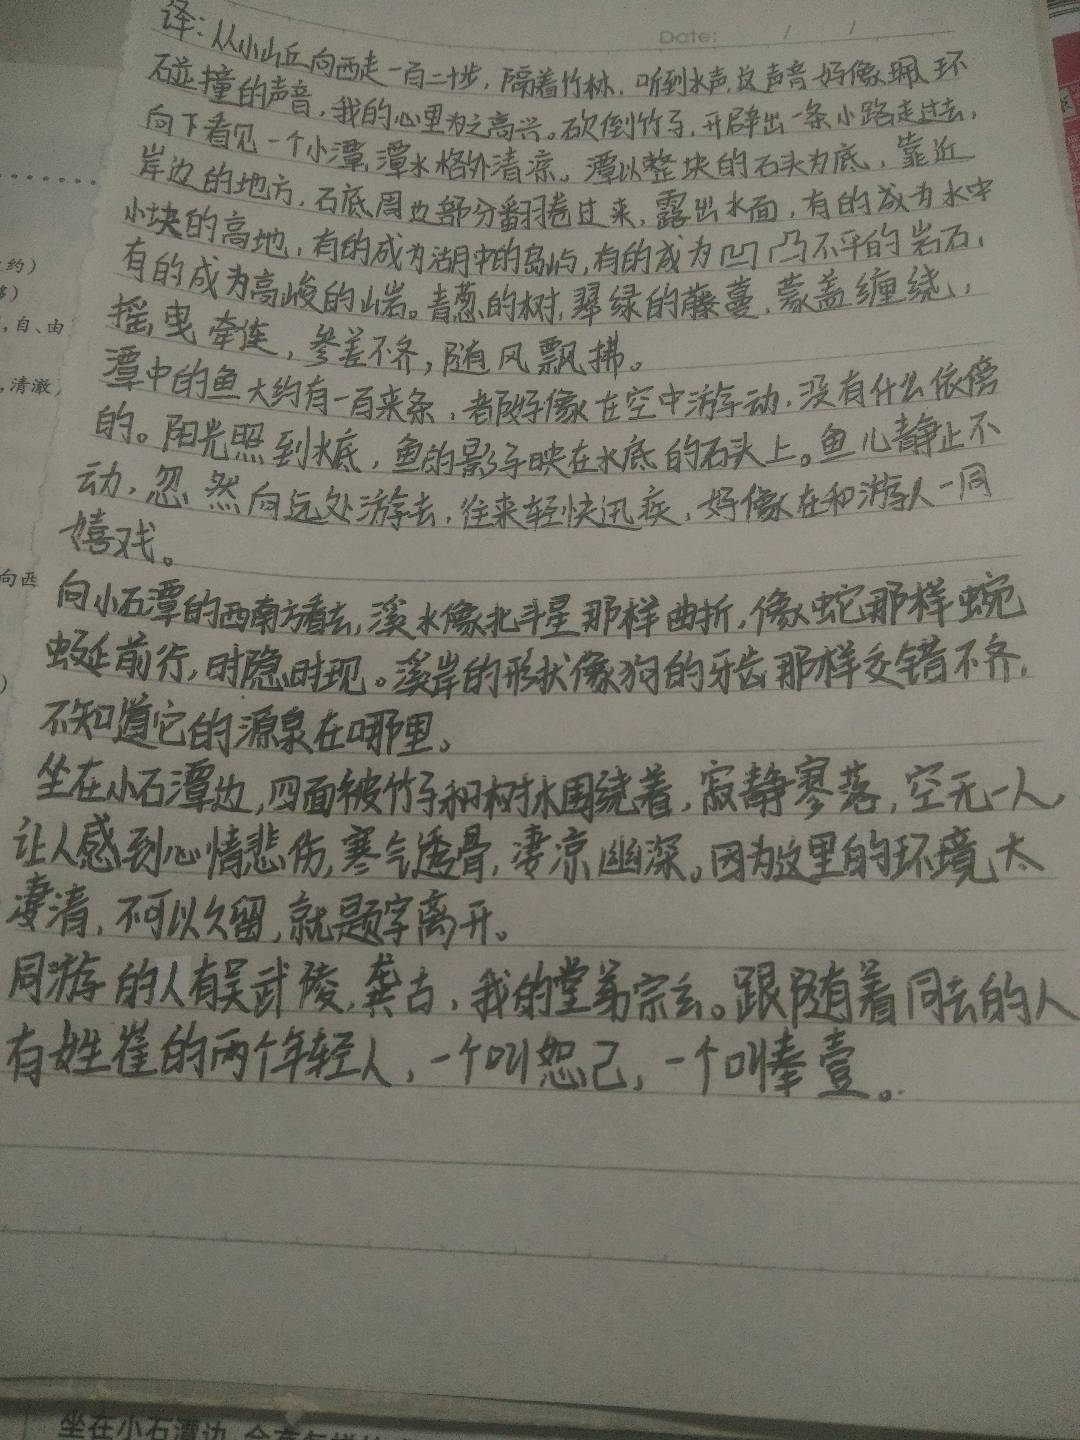 Date: / /
译:从小山丘向西走一百二十步,隔着竹林,听到水声,这声音好像珮环
碰撞的声音,我的心里为之高兴。砍倒竹子,开辟出一条小路走过去,
向下看见一个小潭,潭水格外清凉。潭以整块的石头为底,靠近
岸边的地方,石底周边部分翻卷过来,露出水面,有的成为水中
小块的高地,有的成为湖中的岛屿,有的成为凹凸不平的岩石,
有的成为高峻的山岩。青葱的树,翠绿的藤蔓,蒙盖缠绕,
摇曳牵连,参差不齐,随风飘拂。
潭中的鱼大约有一百来条,都好像在空中游动,没有什么依傍
的。阳光照到水底,鱼的影子映在水底的石头上。鱼儿静止不
动,忽然向远处游去,往来轻快迅疾,好像在和游人一同
嬉戏。
向小石潭的西南方看去,溪水像北斗星那样曲折,像蛇那样蜿
蜒前行,时隐时现。溪岸的形状像狗的牙齿那样交错不齐,
不知道它的源泉在哪里。
坐在小石潭边,四面被竹子和树木围绕着,寂静寥落,空无一人,
让人感到心情悲伤,寒气透骨,凄凉幽深。因为这里的环境太
凄清,不可以久留,就题字离开。
同游的人有吴武陵,龚古,我的堂弟宗玄。跟随着同去的人
有姓崔的两个年轻人,一个叫恕己,一个叫奉壹。
约)
,自、由
,清澈,
向西
坐在小石潭边